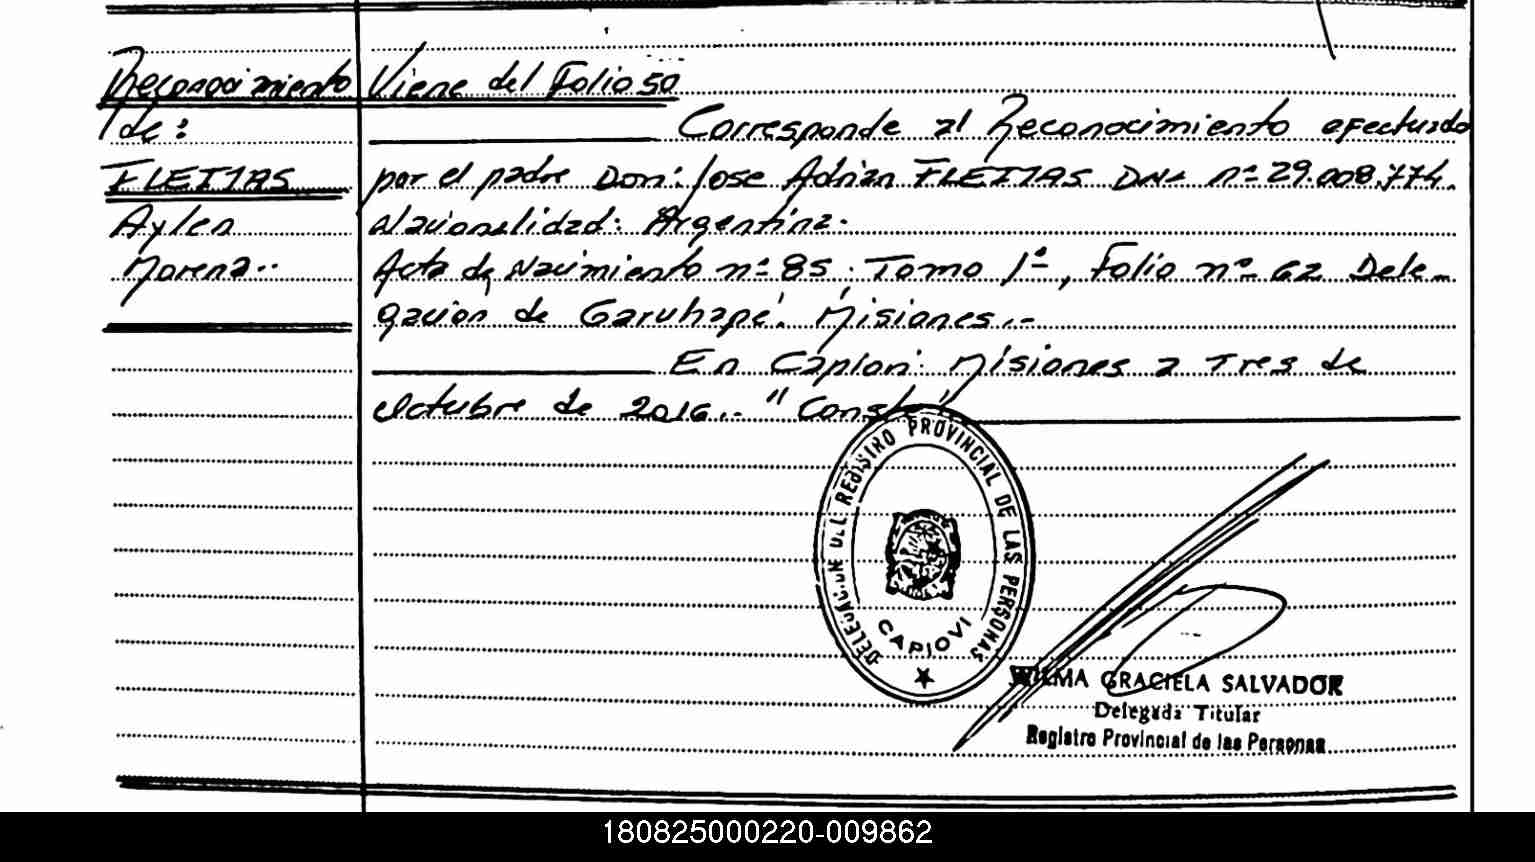 Reconocimiento
de:
FLEITAS
Aylen
Morena..
Viene del Folio 50
Corresponde al Reconocimiento efectuado
por el padre Don: Jose Adrian FLEITAS DNI nº 29.008.774.
Nacionalidad: Argentina.
Acta de Nacimiento nº 85. Tomo 1º, Folio nº 62 Dele-
gación de Garuhapé. Misiones.-
En Capiovi: Misiones a Tres de
Octubre de 2016.- "Conste"
DELEGACION DEL REGISTRO PROVINCIAL DE LAS PERSONAS
CAPIOVI
WILMA GRACIELA SALVADOR
Delegada Titular
Registro Provincial de las Personas
180825000220-009862